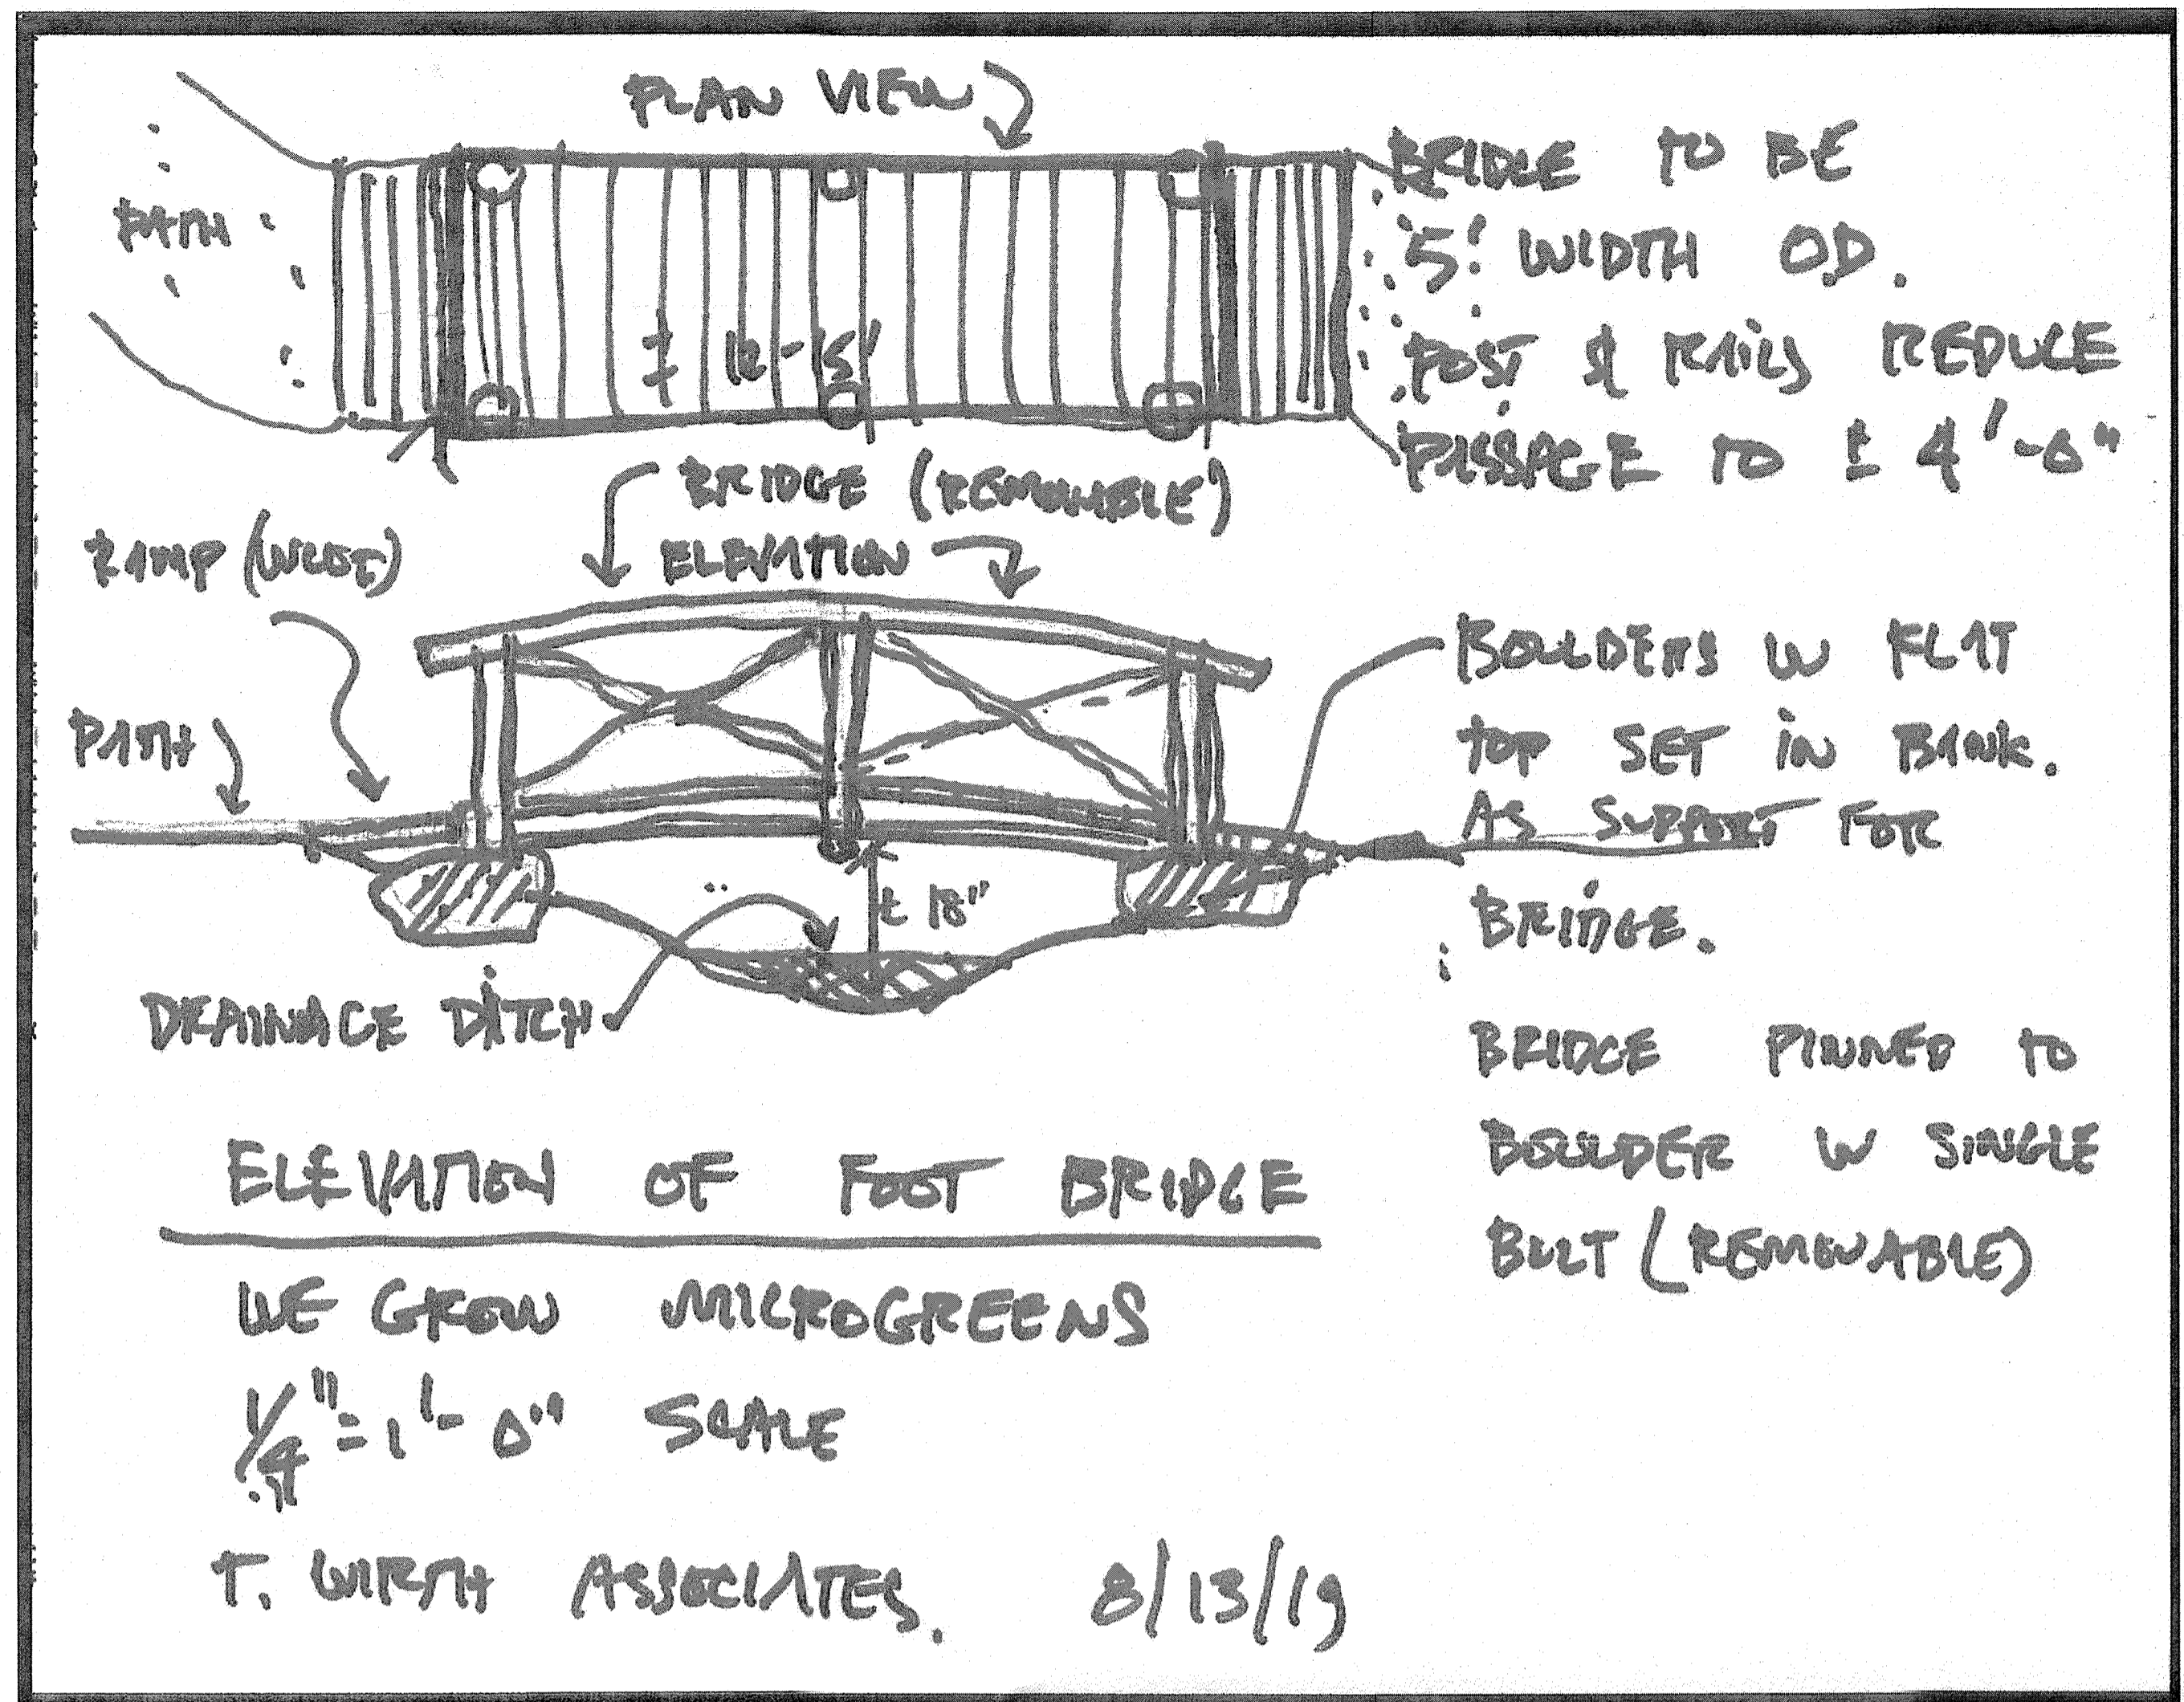 PLAN VIEW
PATH
± 12-15'
BRIDGE TO BE
5' WIDTH OD.
POST & RAILS REDUCE
PASSAGE TO ± 4'-0"
BRIDGE (REMOVABLE)
ELEVATION
RAMP
PATH
± 18"
DRAINAGE DITCH
BOULDERS W FLAT
TOP SET IN BANK.
AS SUPPORT FOR
BRIDGE.
BRIDGE PINNED TO
BOULDER W SINGLE
BOLT (REMOVABLE)
ELEVATION OF FOOT BRIDGE
WE GROW MICROGREENS
1/4" = 1'-0" SCALE
T. WIRTH ASSOCIATES. 8/13/19